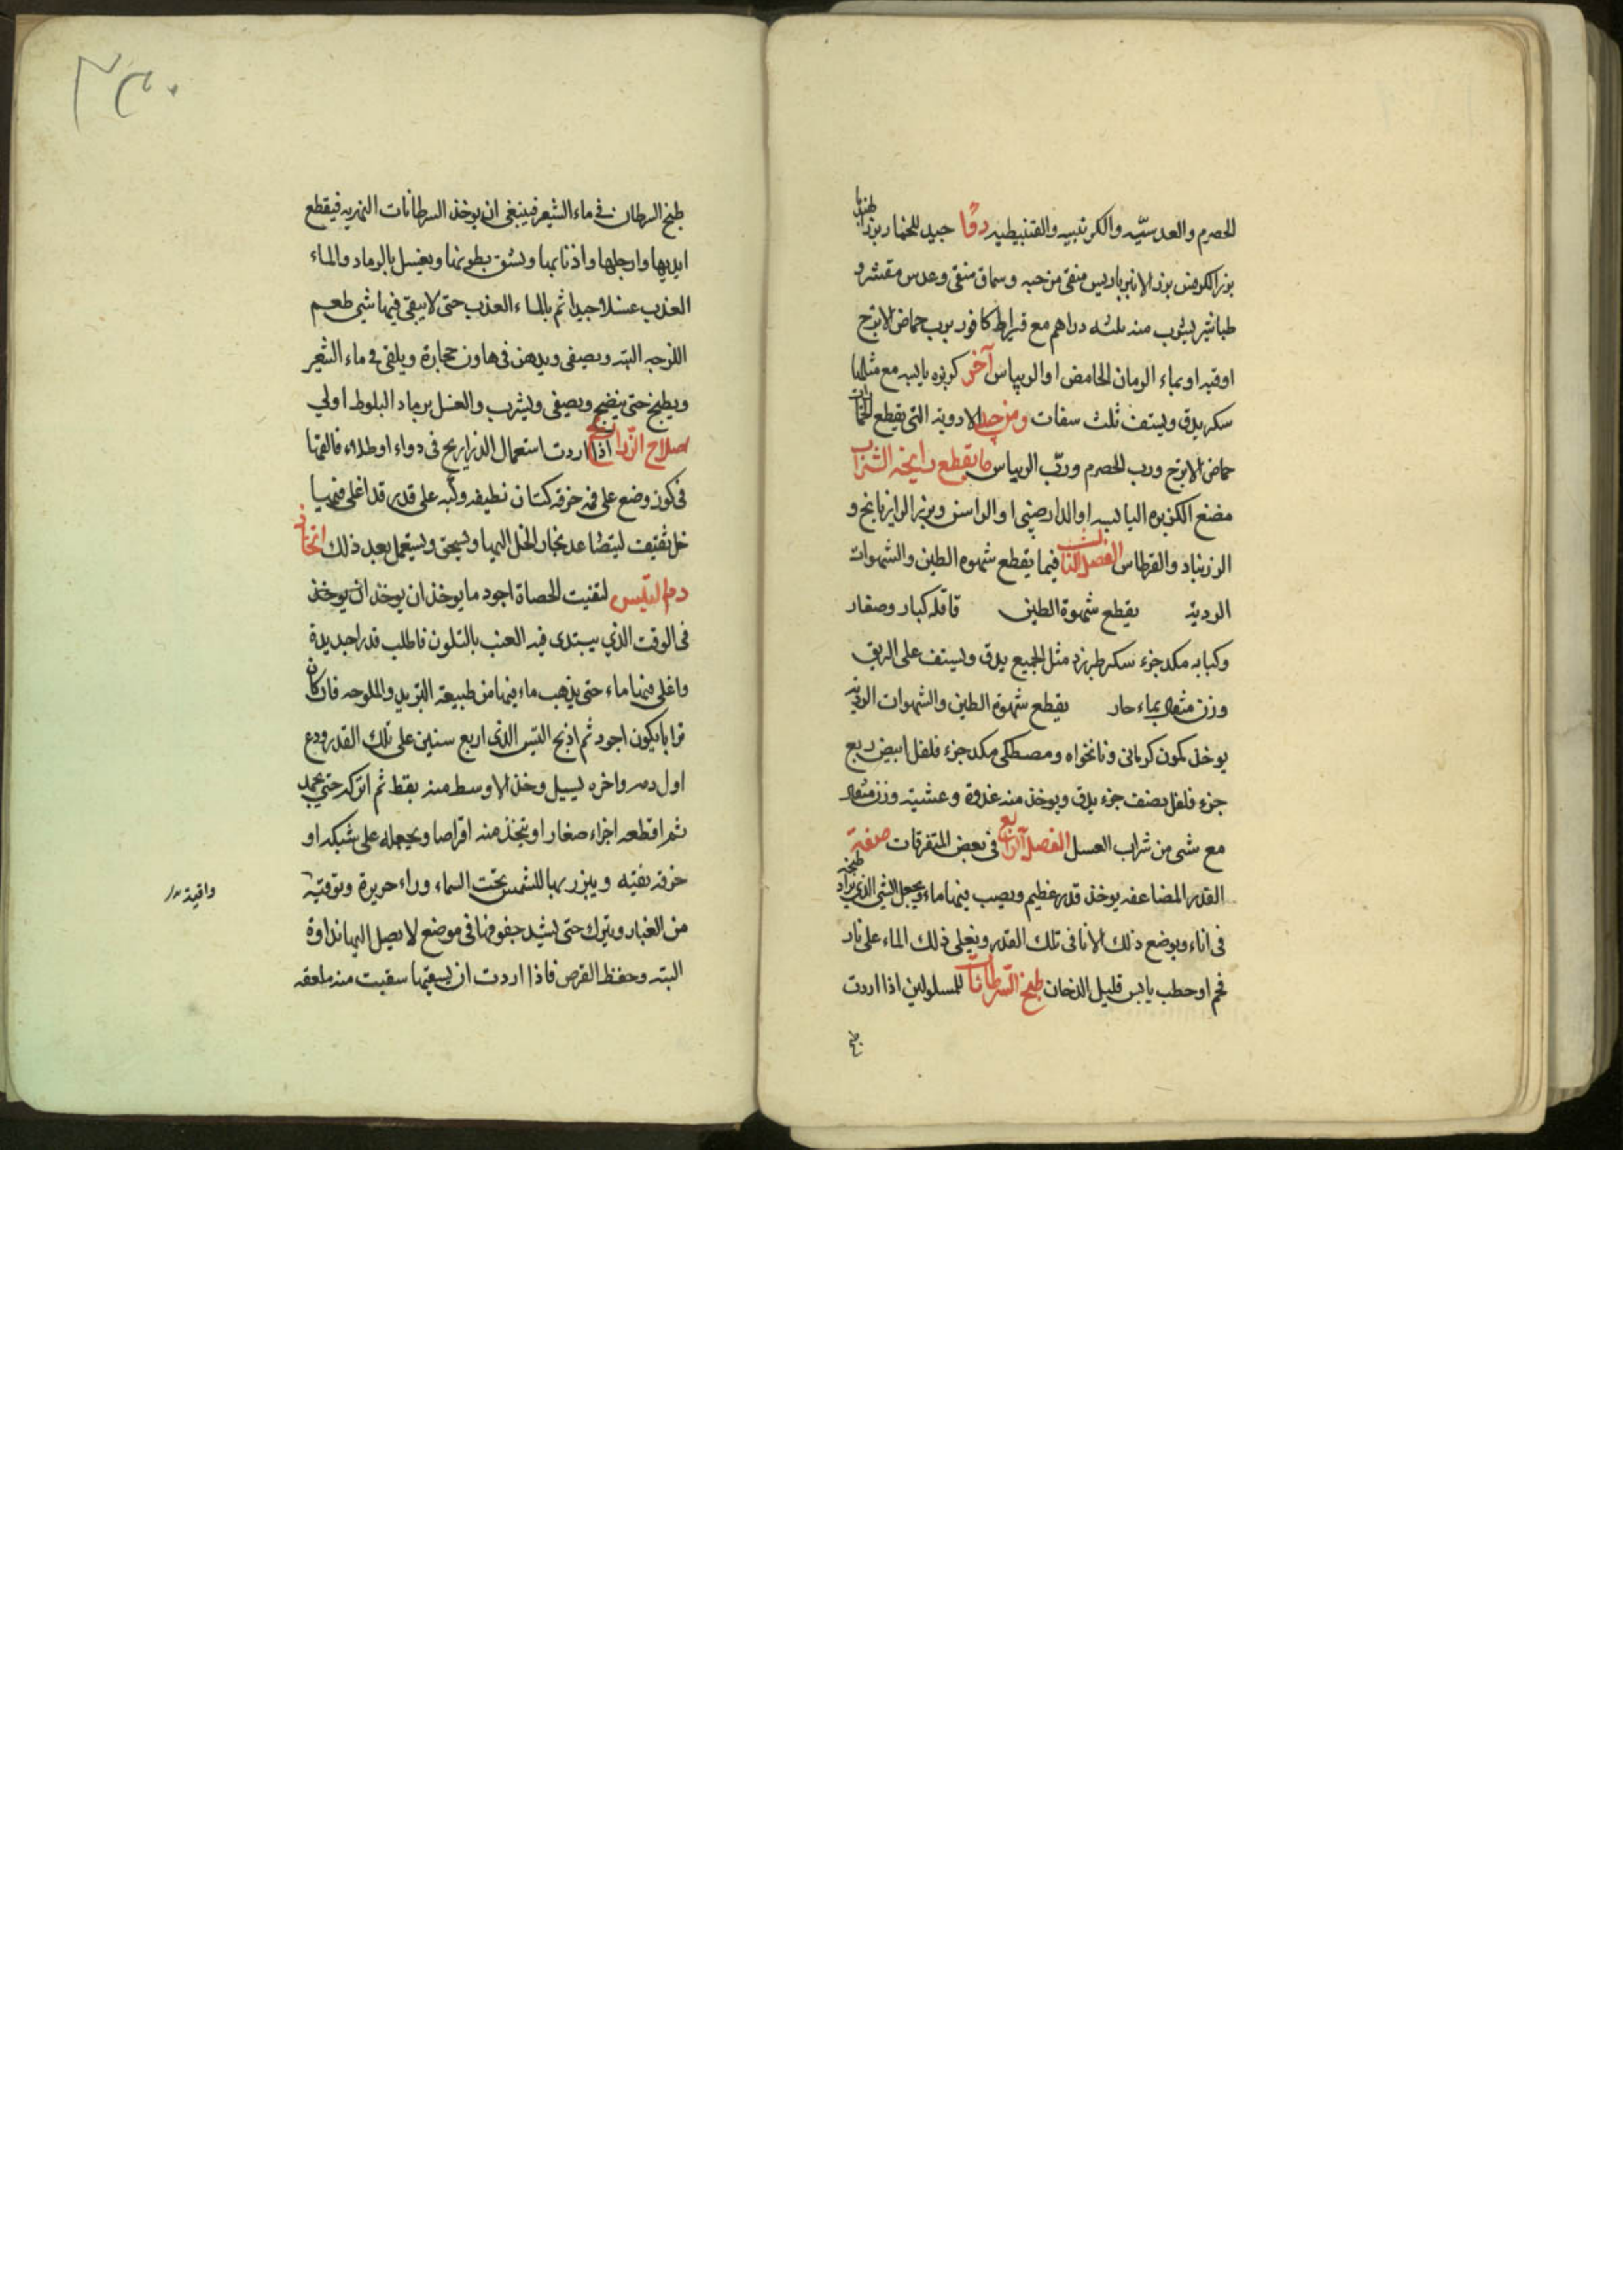 الحصرم والعدسيّه والكرنبيه والقنبيطيه دوًا جيد للخمار بزر الهندبا
بزر الكرفس بزر الانبرباريس منقى من حبه وسماق منقى وعدس مقشر و
طباشير يشرب منه ثلثه دراهم مع قيراط كافور برب حماض الاترج
اوقيه او بماء الرمان الحامض او الريباس آخر كزبره يابسه مع مثلها
سكر يدق ويستف ثلث سفات ومن جيد الادويه التي يقطع الخمار
حماض الاترج ورب الحصرم وربّ الريباس ما يقطع رايحة الشراب
مضغ الكزبره اليابسه او الدارصيني او الراسن وبزر الرازيانج و
الزرنباد والقرطاس الفصل الثالث فيما يقطع شهوه الطين والشهوات
الرديه يقطع شهوة الطين قاقله كبار وصغار
وكبابه مكد جزء سكر طبرزد مثل الجميع يدق ويستف على الريق
وزن مثقال بماء حار يقطع شهوة الطين والشهوات الرديه
يوخذ كمون كرماني ونانخواه ومصطكى مكد جزء فلفل ابيض ربع
جزء فلفل نصف جزء يدق ويوخذ منه غدوة وعشيه وزن مثقال
مع شى من شراب العسل الفصل الرّابع في بعض المتفرقات صفة
القدر المضاعفه يوخذ قدر عظيم ويصب فيها ماء ويجعل الشي الذي يراد طبخه
في اناء ويوضع ذلك الانا في تلك القدر ويغلى ذلك الماء على نار
فحم او حطب يابس قليل الدخان طبخ السّرطانات للمسلولين اذا اردت
طبخ
٢٣٠
طبخ السرطان في ماء الشعير فينبغى ان يوخذ السرطانات النهريه فيقطع
ايديها وارجلها واذنابها ويشق بطونها ويغسل بالرماد والماء
العذب غسلا جيدا ثم بالماء العذب حتى لا يبقى فيها شي طعم
اللزوجه البته ويصفى ويدهن في هاون حجارة ويلقى في ماء الشعير
ويطبخ حتى ينضج ويصفى ويشرب والغسل برماد البلوط اولي
اصلاح الذّراريح اذا اردت استعمال الذراريح في دواء او طلاء فالقها
في كوز وضع على فمه خرقه كتان نظيفه وكبه على قدر قد اغلى فيها
خل ثقيف ليتصاعد بخار الخل اليها ويسحق ويستعمل بعد ذلك اتخاذ
دم التّيس لتفتيت الحصاة اجود ما يوخذ ان يوخذ ان يوخذ
في الوقت الذي يبتدى فيه العنب بالتلون فاطلب قدرا جديدة
واغلى فيها ماء حتى يذهب ماء فيها من طبيعة التزبل والملوحه فان كان
قرابا يكون اجود ثم اذبح التيس الذي اربع سنين على تلك القدر ودع
اول دمه واخره يسيل وخذ الاوسط منه بقط ثم اتركه حتي يجمد
ثم اقطعه اجزاء صغار او يتخذ منه اقراصا ويجعله على شبكه او
خرقه نقيه ويبرز بها للشمس تحت السماء وراء حريرة وتوقيه
من الغبار ويترك حتى يشد جفوفها في موضع لا يصل اليها نداوة
البته وحفظ القرص فاذا اردت ان يسقيها سقيت منه ملعقه